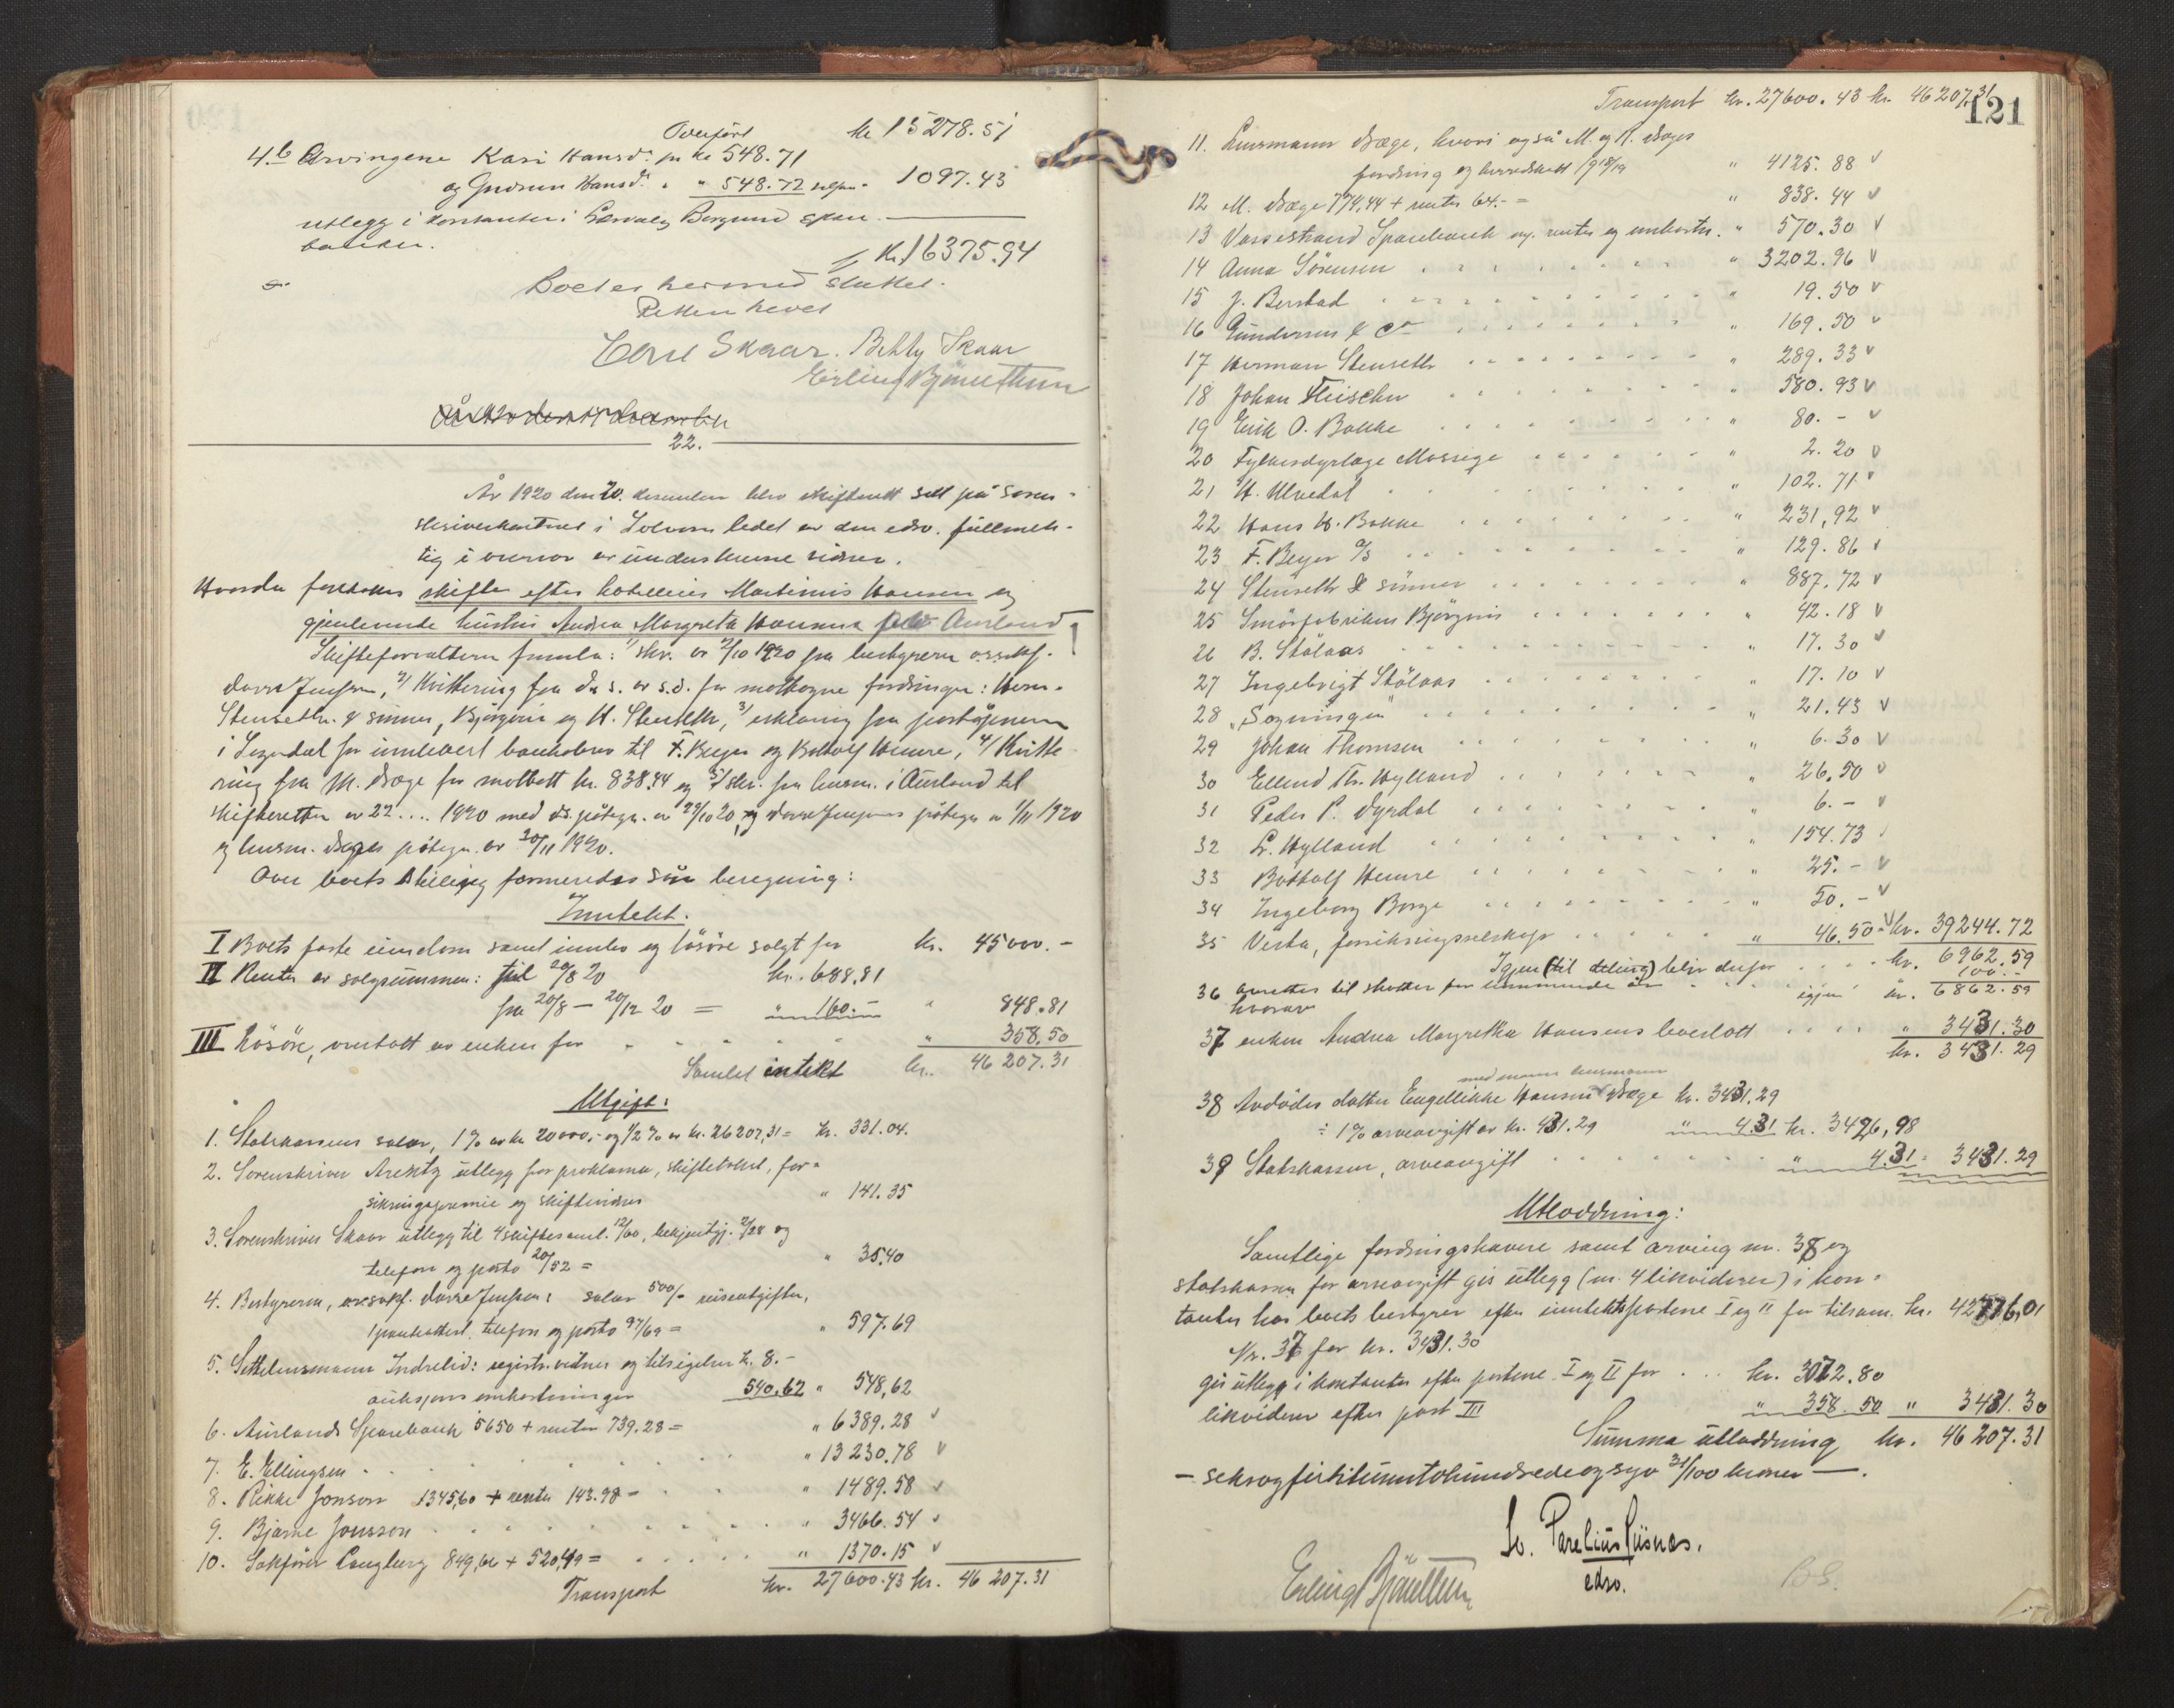 Overført kr 15278.51
4.b Arvingene Kari Hansdr. for kr 548.71
og Gudrun Hansdr. " " 548.72 1097.43
utlegg i kontanter i Borgund spare-
banker.
kr. 16375.94
Boet er hermed sluttet.
Retten hevet
Carl Skaar. Betty Skaar
Erling Bjønethun
22.
År 1920 den 20. desember blev skifterett satt på soren-
skriverkontoret i Solvorn ledet av den edsv. fullmek-
tig i overvær av underskrevne vidner.
Hvorda foretokes skifte efter hotelleier Martinius Hansen og
gjenlevende hustru Andrea Margreta Hansen født Aurland
Skifteforvalteren fremla: 1/ skr. av 2/10 1920 fra bestyreren o.r.sakf.
Jenssen, 2/ Kvittering fra ds. av s.d. for mottagne fordringer: Herm.
Stenseth & sønner, Bjørgvin og H. Stenseth, 3/ erklæring fra postopneren
i Sogndal for innlevert bankobrev til F. Beyer og Bottolf Hemre, 4/ Kvitte-
ring fra M. Bøge for mottatt kr. 838.44 og 5/ skr. fra lensm. i Aurland til
skifteretten av 22 . . . . 1920 med ds. påtegn. av 29/10 20, og Jenssens påtegn av 1/11 1920
og lensm. påtegn. av 30/11 1920.
Over boets stilling formeredes sån beregning:
Inntekt.
I Boets faste eiendom samt innbo og løsøre solgt for kr. 45000.-
II Renter av salgssummen: til 20/8 20 kr. 688.81
fra 20/8 - 20/12 20 = " 160.- " 848.81
III Løsøre, overtatt av enken for " 358.50
Samlet intekt kr. 46 207.31
Utgift:
1. Statskassens salær, 1% av kr 20000,- og 1/2% av kr. 26207,31 = kr. 331.04.
2. Sorenskriver Arentz utlegg for proklama, skifteboket, for-
sikringspremie og skiftevidner " 141.35
3. Sorenskriver Skaar utlegg til 4 skiftesaml. 12/00, bekjentgj. 2/88 og
telefon og porto 20/52 = " 35.40
4. Bestyreren, o.r.sakf. Jenssen: salær 500/- reiseutgifter,
telefon og porto 97/69 = " 597.69
5. Settelensmann Indrelid: registr. vidner og tilsigelser kr. 8.-
auksjonsomkostninger 540.62 " 548,62
6. Aurlands Sparebank 5650 + renter 739.28 = " 6389.28
7. E. Ellingsen " 13230.78
8. Rikke Jonson 1345,60 + renter 143.98 = " 1489.58
9. Bjarne Jonsson " 3466.54
10. Sakfører Langberg 849,66 + 520,49 = " 1370.15
Transport kr. 27600.43 kr. 46 207.31
121
Transport kr. 27600.43 kr. 46207.31
11. Lensmann Bøge, hvori også M. og H. Bøges
fordring og herredskatt 1918/19 " 4125.88
12 M. Bøge 774,44 + renter 64.- = " 838.44
13 Vossestrand Sparebank og. renter og omkostn. " 570.30
14 Anna Sørensen " 3202.96
15 J. Berstad " 19.50
16 Gundersen & Co " 169.50
17 Herman Stenseth " 289.33
18 Johan Fleischer " 580.93
19 Eirik O. Bakke " 80.-
20 Fylkesdyrlæge Mossige 2.20
21 H. Ulvedal 102.71
22 Hans H. Bakke " 231,92
23 F. Beyer A/S " 129.86
24 Stenseth & sønner " 887.72
25 Smørfabriken Bjørgvin " 42.18
26 B. Stølaas 17.30
27 Ingebrigt Stølaas " 17.10
28 "Sogningen" " 21.43
29 Johan Thomsen " 6.30
30 Ellend Th. Hylland " 26.50
31 Peder P. Dyrdal " 6.-
32 L. Hylland " 154.73
33 Bottolf Hemre " 25.-
34 Ingeborg Borge " 50.-
35 Vesta, forsikringsselskap " 46.50 kr. 39244.72
Igjen (til deling) blir derfor kr. 6962.59
36 avsettes til skatter for inneværende år 100.-
hvorav igjen kr. 6862.59
37 enken Andrea Margretha Hansens boeslott " 3431.30
kr. 3431.29
med mann lensmann
38 Avdødes datter Engellikke Hansen Bøge kr. 3431.29
÷ 1% arveavgift av kr. 431.29 " 4.31 kr. 3426,98
39 Statskassen, arveavgift " 4.31 = 3431.29
Utloddning:
Samtlige fordringshavere samt arving nr. 38 og
statskassen for arveavgift gis utlegg (nr. 4 likviderer) i kon-
tanter hos boets bestyrer efter inntektspostene I og II for tilsam. kr. 42776,01
Nr. 37 for kr. 3431.30
gis utlegg i kontanter efter postene I og II for kr. 3072.80
likviderer efter post III " 358.50 " 3431.30
Summa utloddning kr. 46 207.31
— seksogfirtitusentohundredeogsyv 31/100 kroner —.
edsv.
Erling Bjønethun